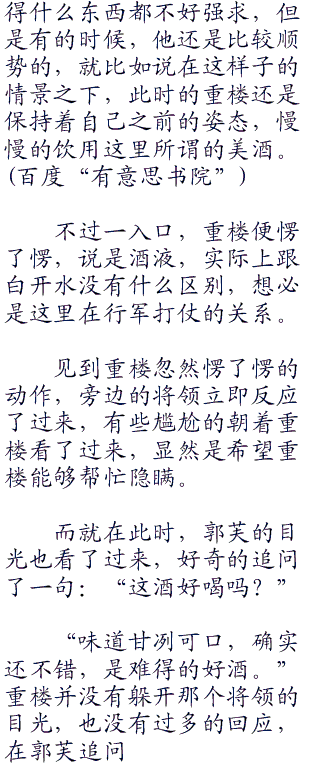 得什么东西都不好强求，但
是有的时候，他还是比较顺
势的，就比如说在这样子的
情景之下，此时的重楼还是
保持着自己之前的姿态，慢
慢的饮用这里所谓的美酒。
(百度“有意思书院”)
不过一入口，重楼便愣
了愣，说是酒液，实际上跟
白开水没有什么区别，想必
是这里在行军打仗的关系。
见到重楼忽然愣了愣的
动作，旁边的将领立即反应
了过来，有些尴尬的朝着重
楼看了过来，显然是希望重
楼能够帮忙隐瞒。
而就在此时，郭芙的目
光也看了过来，好奇的追问
了一句：“这酒好喝吗？”
“味道甘冽可口，确实
还不错，是难得的好酒。”
重楼并没有躲开那个将领的
目光，也没有过多的回应，
在郭芙追问